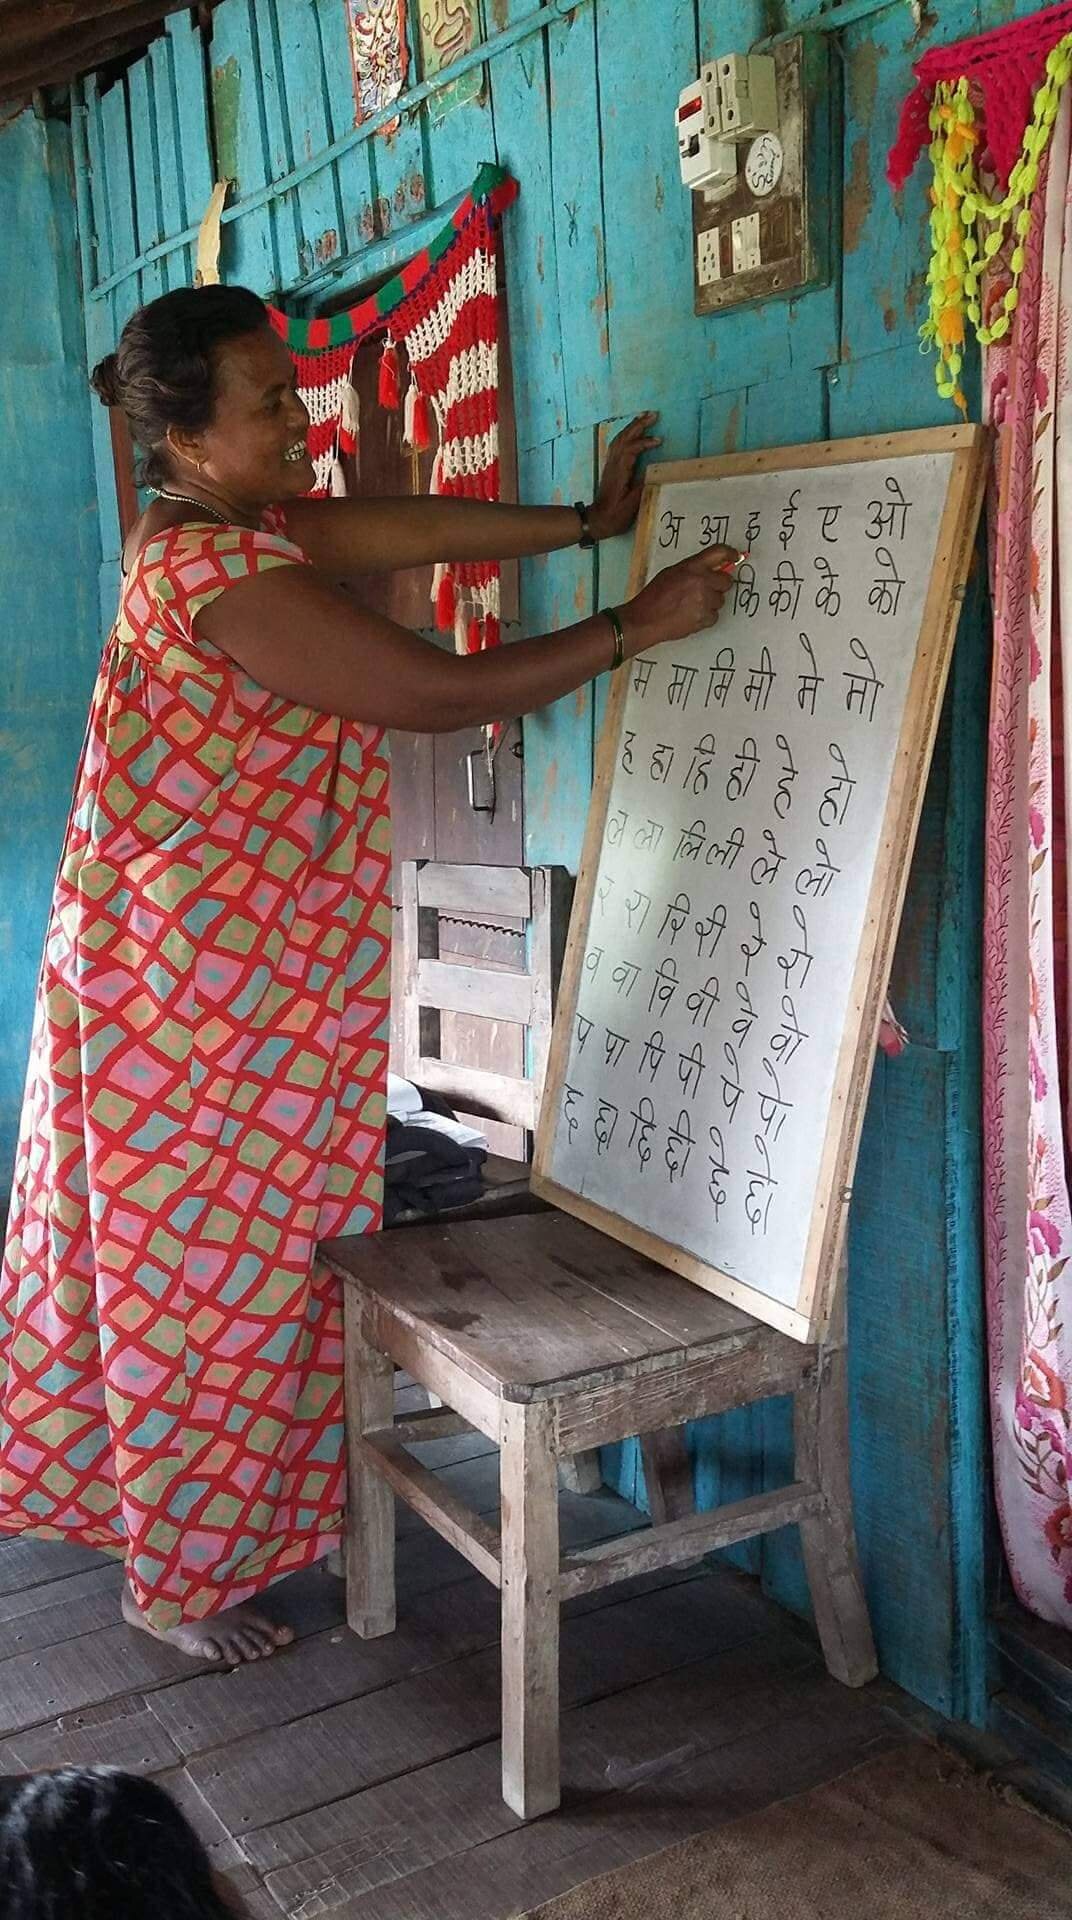 अ आ इ ई ए ओ
कि की के को
म मा मि मी मे मो
ह हा हि ही हे हो
ल ला लि ली ले लो
र रा रि री रे रो
व वा वि वी वे वो
प पा पि पी पे पो
छ छा छि छी छे छो